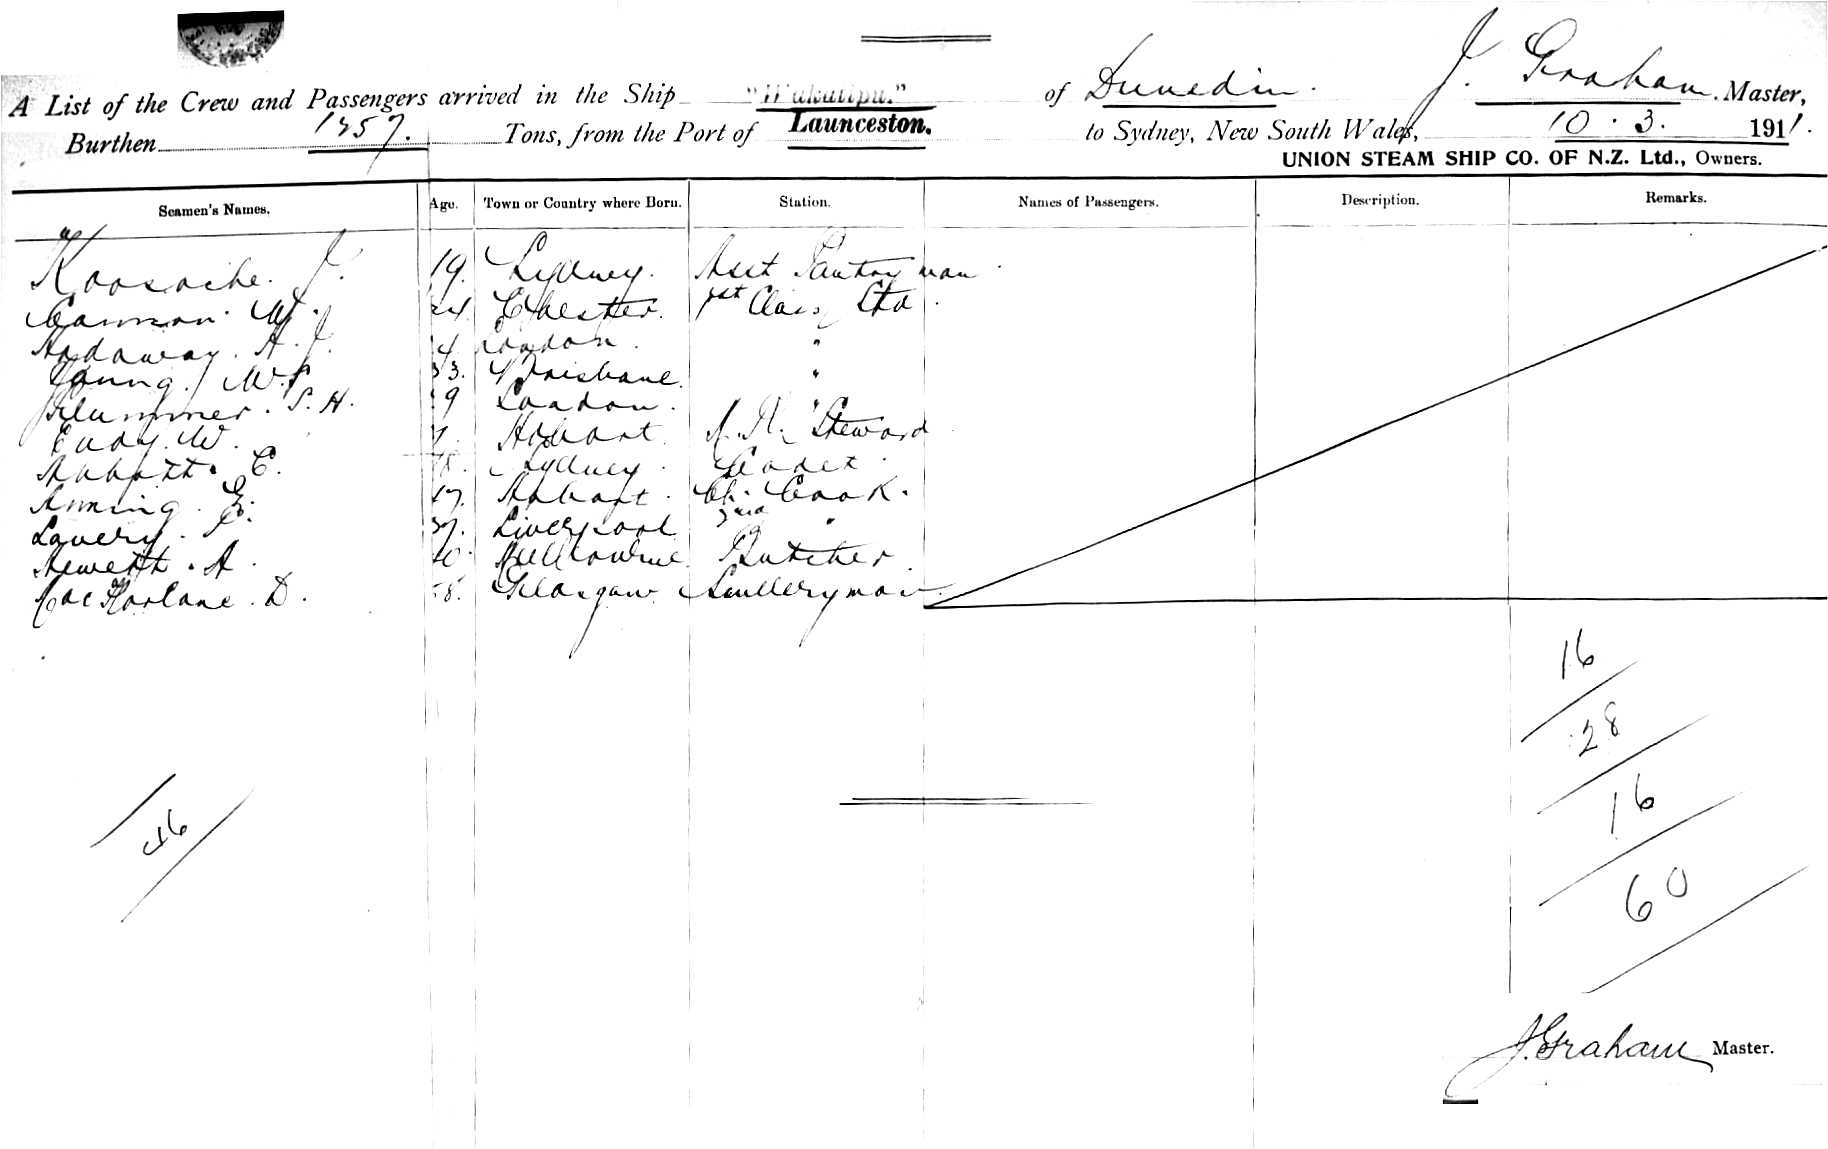 A List of the Crew and Passengers arrived in the Ship "Wakatipu." of Dunedin. J. Graham. Master,
Burthen 1257. Tons, from the Port of Launceston. to Sydney, New South Wales, 10.3. 1911.
UNION STEAM SHIP CO. OF N.Z. Ltd., Owners.
Seamen's Names. Age. Town or Country where Born. Station. Names of Passengers. Description. Remarks.
J. 19. Sydney. Asst Pantryman
W. 24. Chester. 1st Class Std.
Hadaway. A. J. London. "
Young. W. 33. Brisbane. "
Plummer. S. H. 29 London. "
Eady. W. Hobart. Steward
Abbott. C. 18. Sydney. Cadet.
Anning. E. Hobart. Ch. Cook.
Lavery. E. 37. Liverpool 2nd "
Hewett. A. Melbourne. Butcher
MacFarlane. D. Glasgow Sculleryman.
16
28
16
60
46
J. Graham Master.